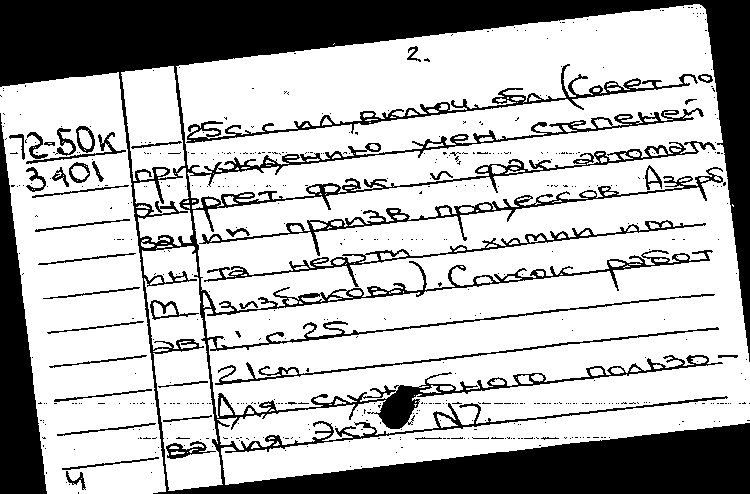 2.
72-50к
3401
25с. с ил., включ. обл. (Совет по
присуждению учен. степеней
энергет. фак. и фак. автомати-
зации произв. процессов Азерб.
ин-та нефти и химии им.
М Азизбекова). Список работ
авт.: с 25.
21см.
Для служебного пользо-
вания. Экз. N7.
ч